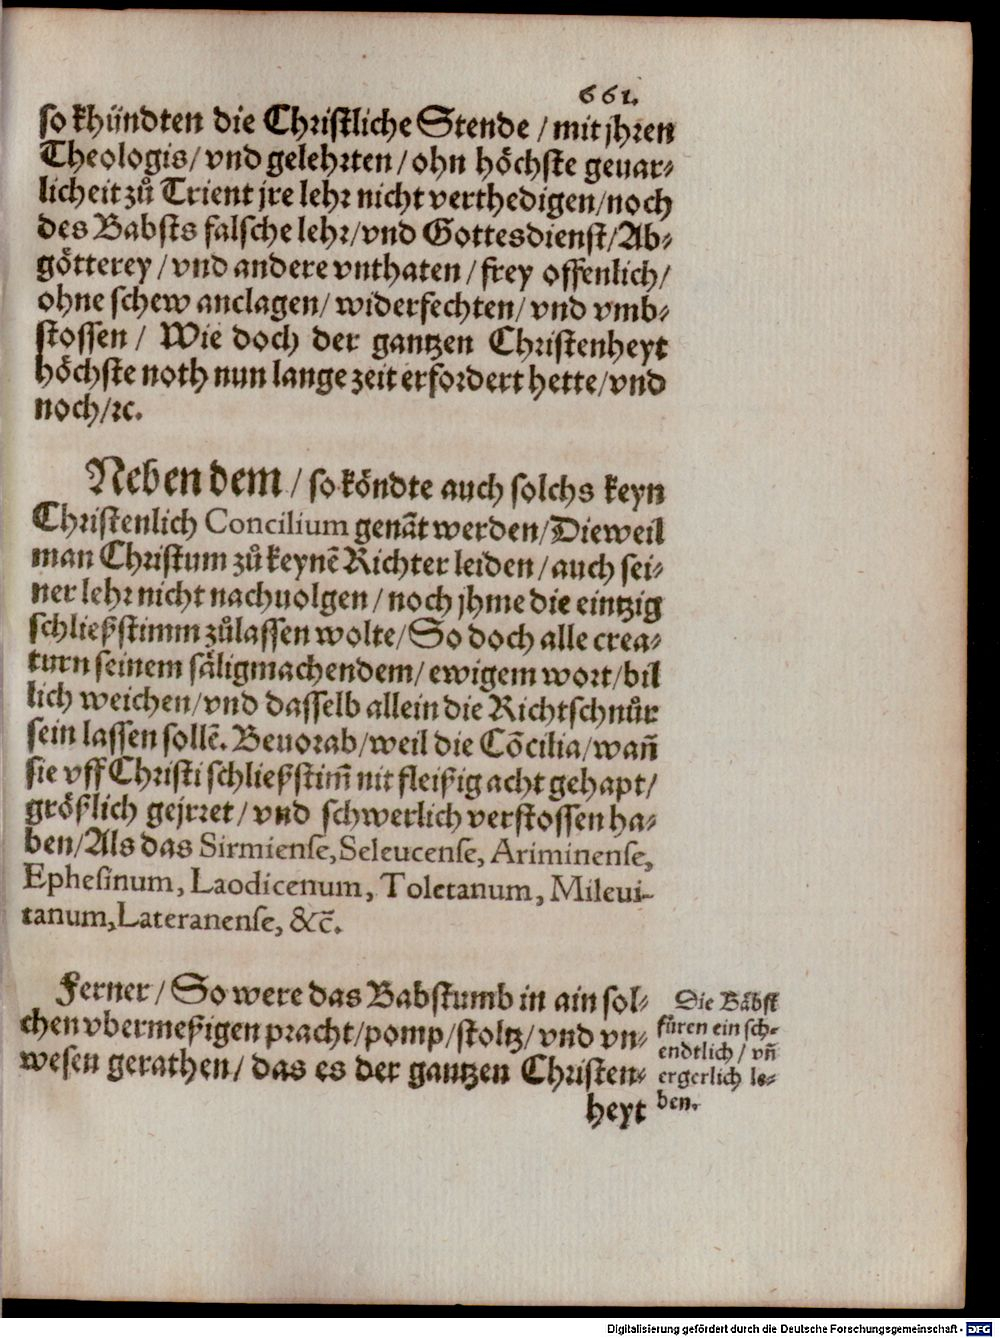 661.
so khündten die Christliche Stende / mit jhren
Theologis/ vnd gelehrten/ ohn höchste geuar-
licheit zů Trient jre lehr nicht verthedigen/noch
des Babsts falsche lehr/vnd Gottesdienst/Ab-
götterey / vnd andere vnthaten / frey offenlich/
ohne schew anclagen/ widerfechten/ vnd vmb-
stossen / Wie doch der gantzen Christenheyt
höchste noth nun lange zeit erfordert hette/vnd
noch/ꝛc.
Neben dem / so köndte auch solchs keyn
Christenlich Concilium genāt werden/Dieweil
man Christum zů keynē Richter leiden/auch sei-
ner lehr nicht nachuolgen / noch jhme die eintzig
schließstimm zůlassen wolte/ So doch alle crea-
turn seinem säligmachendem/ ewigem wort/bil
lich weichen/vnd dasselb allein die Richtschnůr
sein lassen sollē. Beuorab/weil die Cōcilia/wañ
sie vff Christi schließstim̄ nit fleißig acht gehapt/
größlich gejrret / vnd schwerlich verstossen ha-
ben/Als das Sirmiense, Seleucense, Ariminense,
Ephesinum, Laodicenum, Toletanum, Mileui-
tanum, Lateranense, &c̄.
Ferner / So were das Babstumb in ain sol-
chen vbermeßigen pracht/pomp/stoltz/ vnd vn-
wesen gerathen/ das es der gantzen Christen-
heyt
Die Bäbst
füren ein sch-
endtlich / vñ
ergerlich le-
ben.
Digitalisierung gefördert durch die Deutsche Forschungsgemeinschaft - DFG